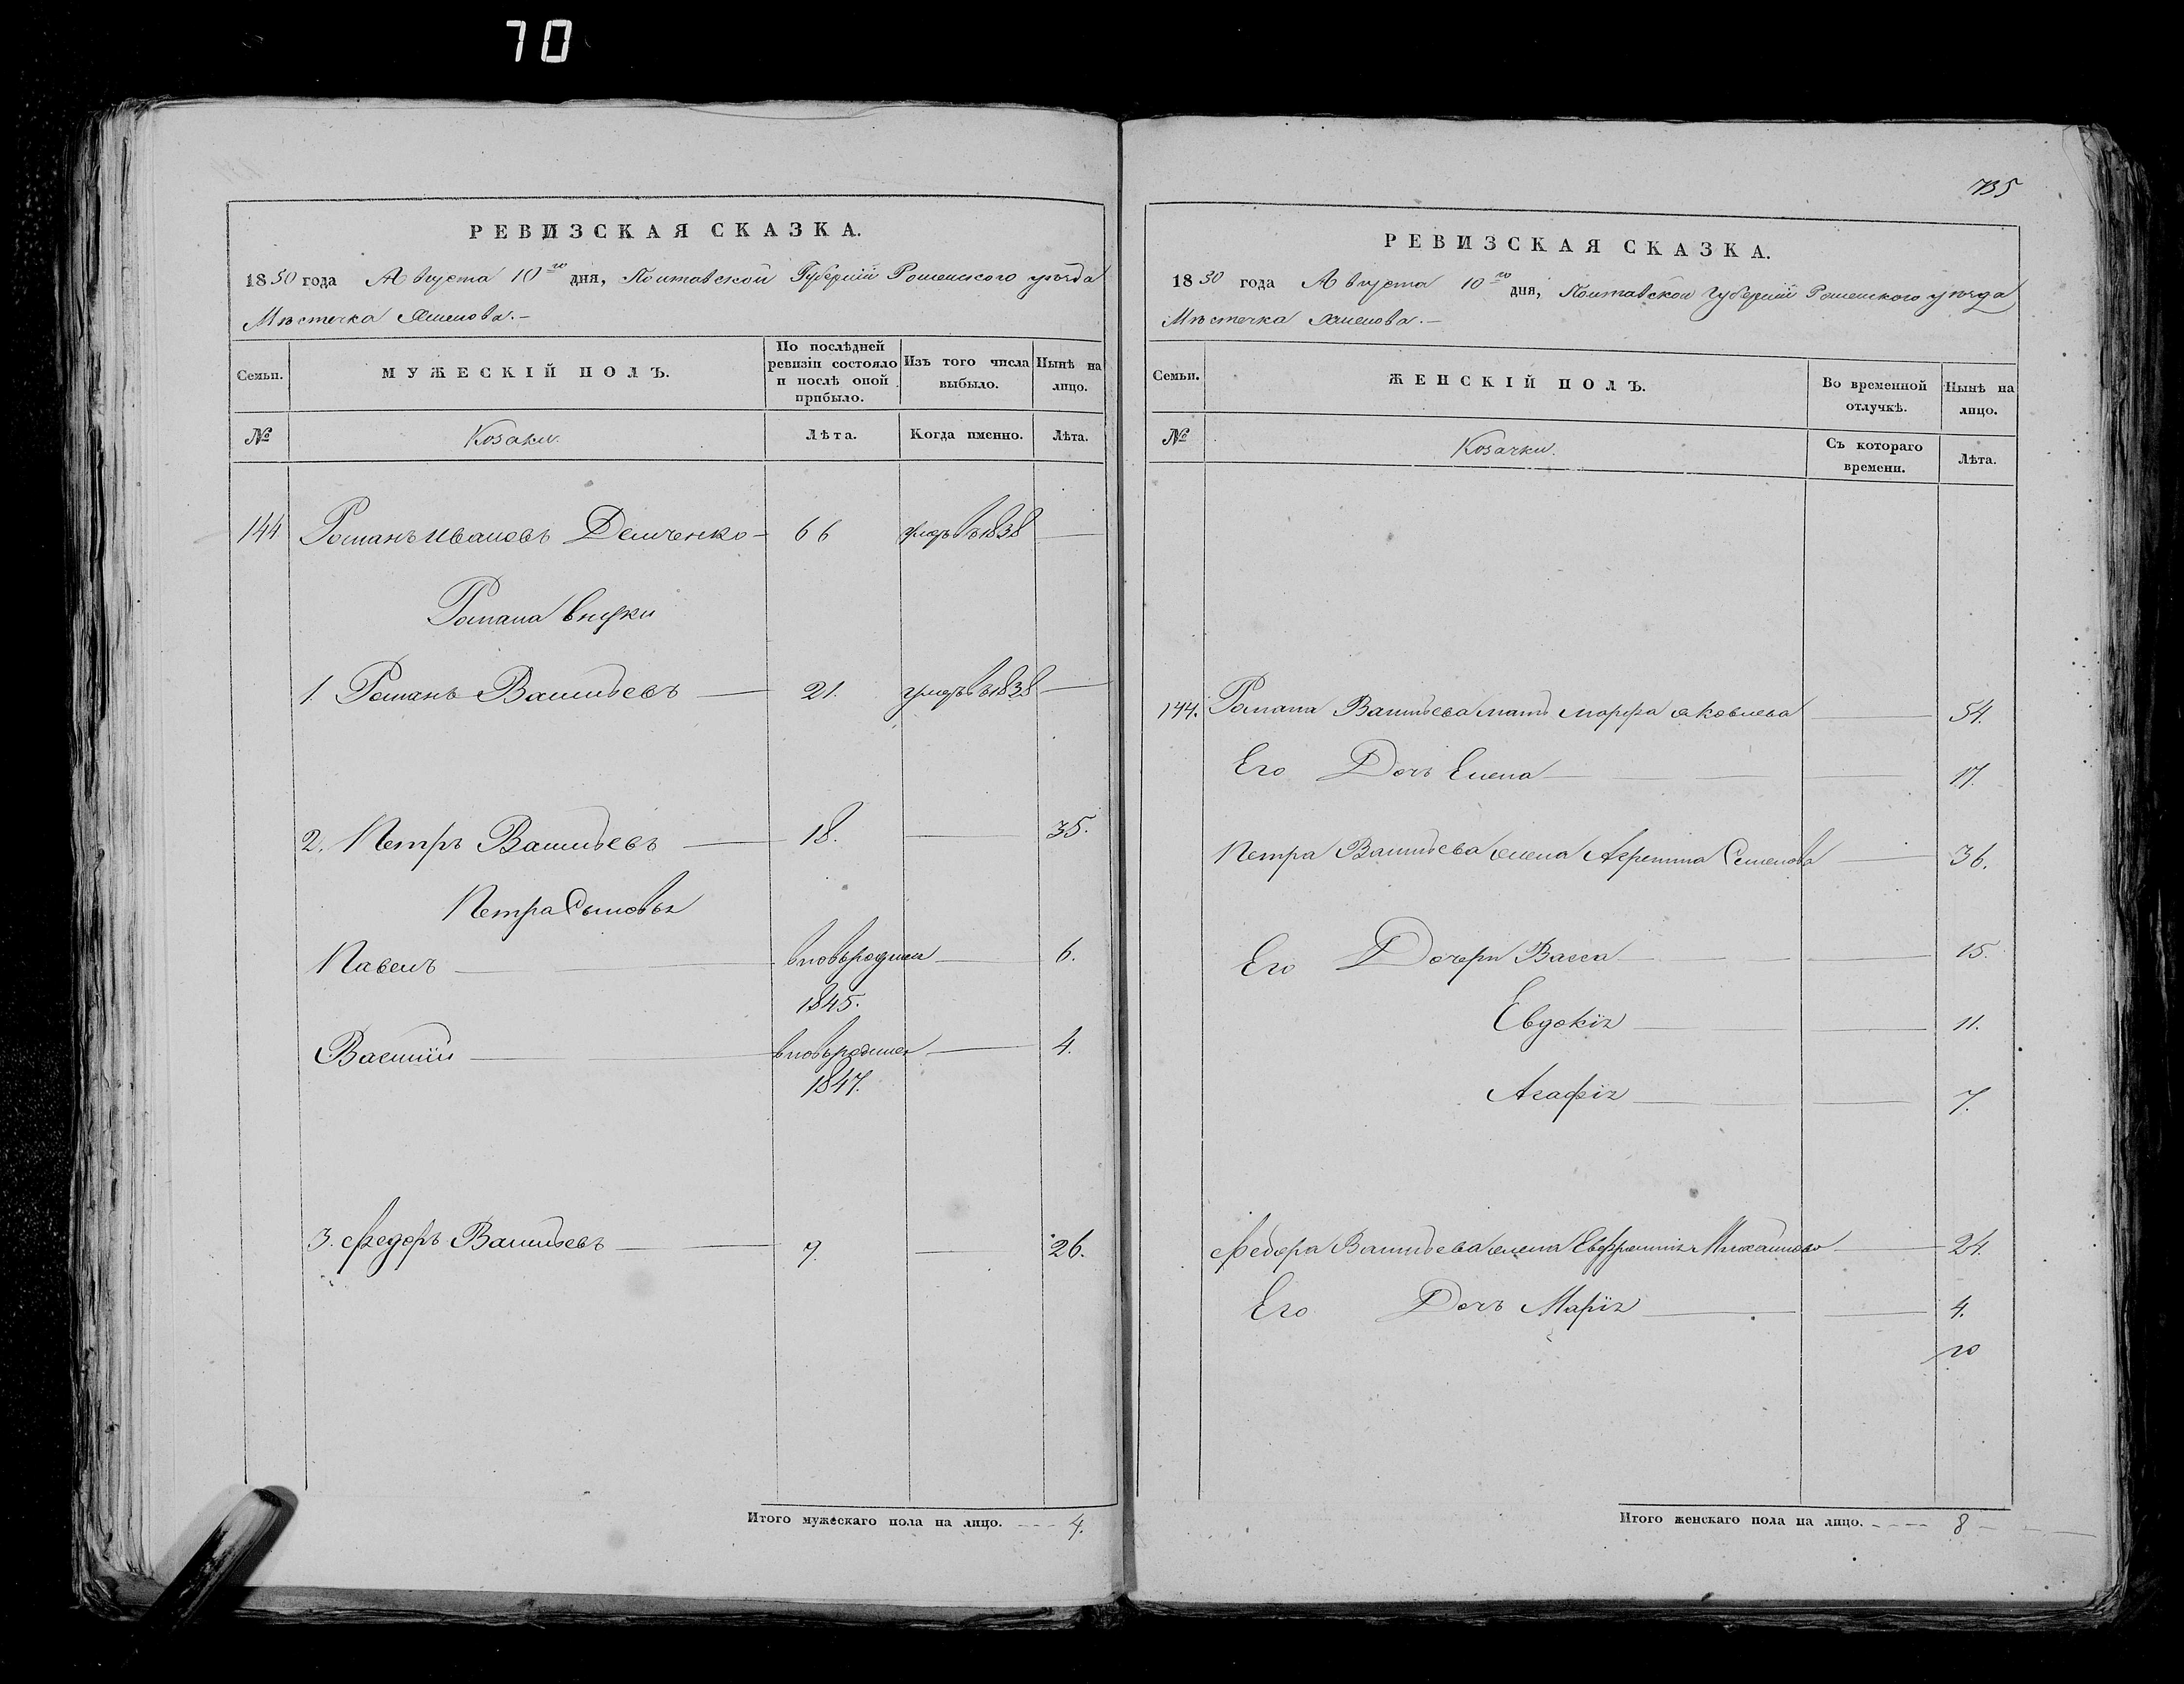 70
РЕВИЗСКАЯ СКАЗКА.
1850 года Августа 10го дня, Полтавской Губерніи Роменского уѣзда
Мѣстечка Хмелова.-
Семьи.
МУЖЕСКІЙ ПОЛЪ.
По послѣдней ревизіи состояло и послѣ оной прибыло.
Изъ того числа выбыло.
Нынѣ на лицо.
№
Козаки.
Лѣта.
Когда именно.
Лѣта.
144 Романъ Ивановъ Демченко - 66 умеръ въ 1838 —
Романа внуки
1. Романъ Васильевъ — 21. умеръ въ 1838 —
2. Петръ Васильевъ — 18. — 35.
Петра Сыновья
Павелъ — вновьрожден — 6.
1845.
Василій — вновьрожден — 4.
1847.
3. Федоръ Васильевъ — 9. — 26.
Итого мужескаго пола на лицо. - - - 4.
735
РЕВИЗСКАЯ СКАЗКА.
1850 года Августа 10го дня, Полтавской Губерніи Роменского уѣзда
Мѣстечка Хмелова.-
Семьи.
ЖЕНСКІЙ ПОЛЪ.
Во временной отлучкѣ.
Нынѣ на лицо.
№
Козачки.
Съ котораго времени.
Лѣта.
144. Романа Васильева мать Марфа Яковлева — 54.
Его Дочь Елена — 17.
Петра Васильева жена Семенова — 36.
Его Дочери Васса — 15.
Евдокія — 11.
Агафія — 7.
Федора Васильева жена Евфросинія Михайлова — 24.
Его Дочь Марія — 4.
Итого женскаго пола на лицо. - - - - 8 -